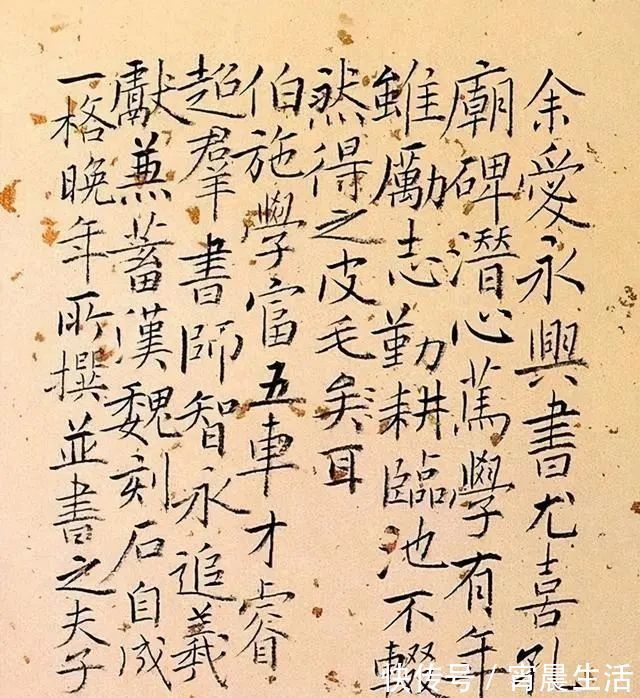 余愛永興書尤喜孔
廟碑潛心篤學有年
雖勵志勤耕臨池不輟
然得之皮毛矣耳
伯施學富五車才睿
超羣書師智永追羲
獻兼蓄漢魏刻石自成
一格晚年所撰並書之夫子
快传号/宵晨生活